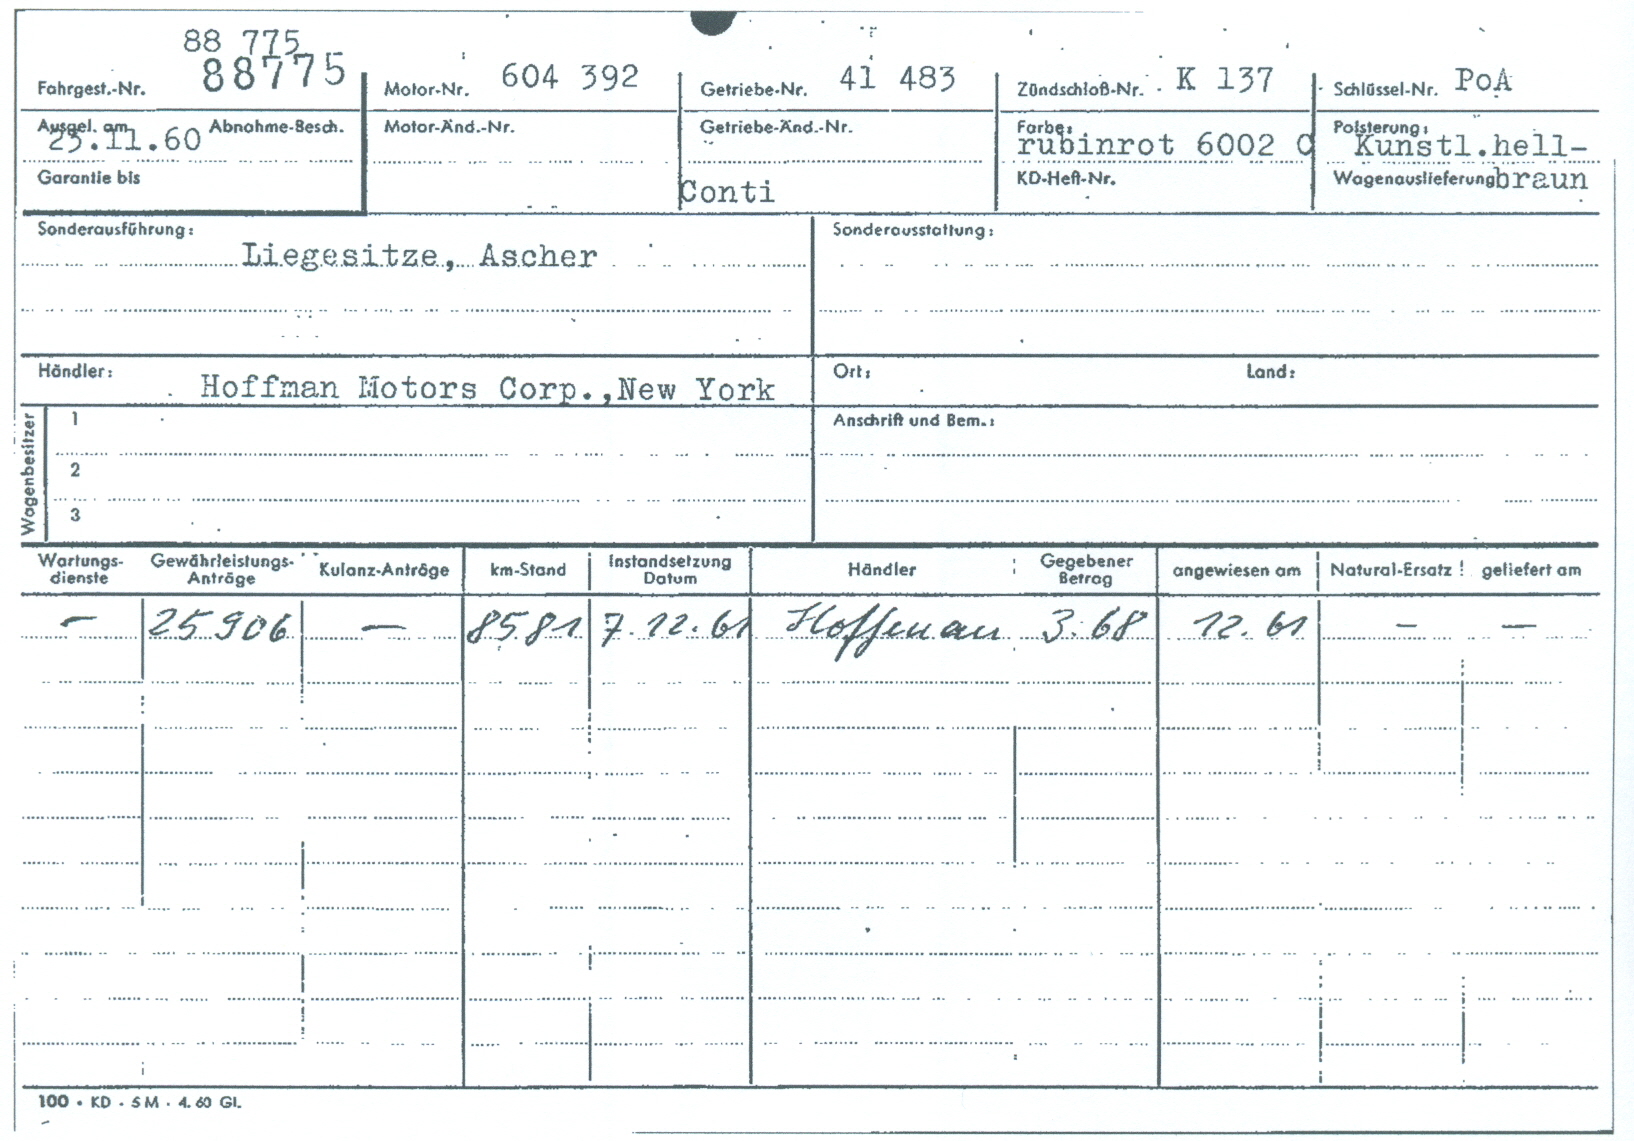 88 775
Fahrgest.-Nr. 88775 Motor-Nr. 604 392 Getriebe-Nr. 41 483 Zündschloß-Nr. K 137 Schlüssel-Nr. PoA
Ausgel. am Abnahme-Besch. Motor-Änd.-Nr. Getriebe-Änd.-Nr. Farbe: Polsterung:
23.11.60 rubinrot 6002 C Kunstl.hell-
Garantie bis KD-Heft-Nr. Wagenauslieferung braun
Conti
Sonderausführung: Sonderausstattung:
Liegesitze, Ascher
Händler: Hoffman Motors Corp.,New York Ort: Land:
Wagenbesitzer
1 Anschrift und Bem.:
2
3
Wartungs-dienste Gewährleistungs-Anträge Kulanz-Anträge km-Stand Instandsetzung Datum Händler Gegebener Betrag angewiesen am Natural-Ersatz geliefert am
– 25906 – 8581 7.12.61 Hoffman 3.68 12.61 – –
100 • KD • 5 M • 4.60 Gl.